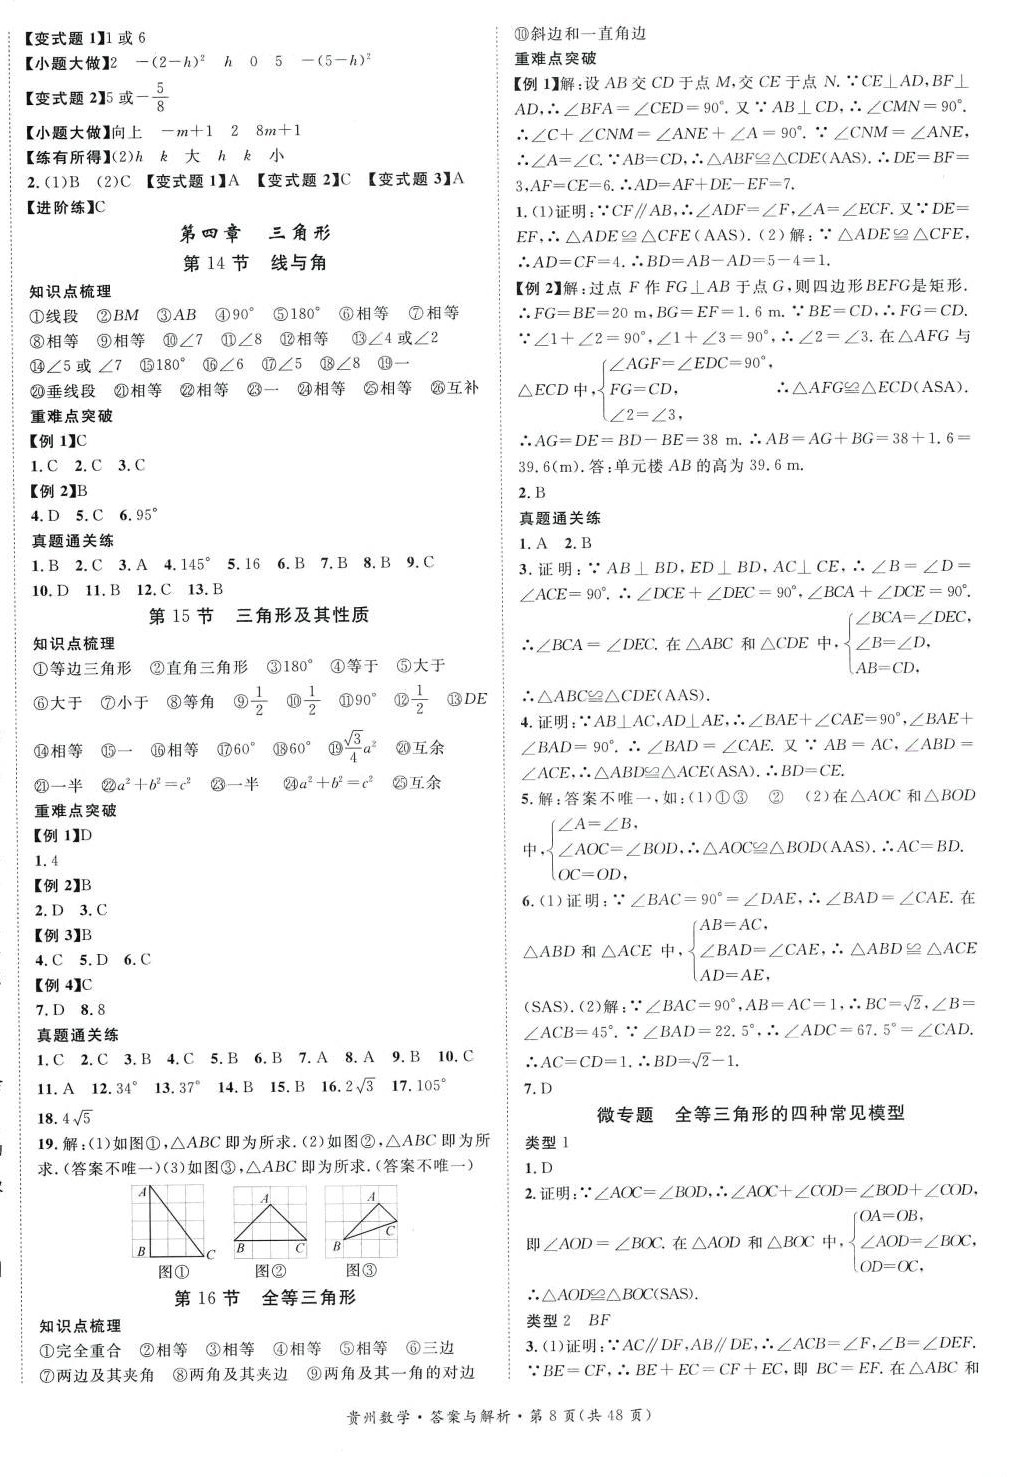 【变式题 1】1 或 6
【小题大做】2　－(2－h)²　h　0　5　－(5－h)²
【变式题 2】5 或－5/8
【小题大做】向上　－m＋1　2　8m＋1
【练有所得】(2)h　k　大　h　k　小
2. (1)B　(2)C　【变式题 1】A　【变式题 2】C　【变式题 3】A
【进阶练】C
第四章　三角形
第 14 节　线与角
知识点梳理
①线段　②BM　③AB　④90°　⑤180°　⑥相等　⑦相等
⑧相等　⑨相等　⑩∠7　⑪∠8　⑫相等　⑬∠4 或∠2
⑭∠5 或 ∠7　⑮180°　⑯∠6　⑰∠5　⑱∠8　⑲一
⑳垂线段　㉑相等　㉒相等　㉓一　㉔相等　㉕相等　㉖互补
重难点突破
【例 1】C
1. C　2. C　3. C
【例 2】B
4. D　5. C　6. 95°
真题通关练
1. B　2. C　3. A　4. 145°　5. 16　6. B　7. B　8. B　9. C
10. D　11. B　12. C　13. B
第 15 节　三角形及其性质
知识点梳理
①等边三角形　②直角三角形　③180°　④等于　⑤大于
⑥大于　⑦小于　⑧等角　⑨1/2　⑩1/2　⑪90°　⑫1/2　⑬DE
⑭相等　⑮一　⑯相等　⑰60°　⑱60°　⑲√3/4 a²　⑳互余
㉑一半　㉒a²＋b²＝c²　㉓一半　㉔a²＋b²＝c²　㉕互余
重难点突破
【例 1】D
1. 4
【例 2】B
2. D　3. C
【例 3】B
4. C　5. D　6. C
【例 4】C
7. D　8. 8
真题通关练
1. C　2. C　3. B　4. C　5. B　6. B　7. A　8. A　9. B　10. C
11. A　12. 34°　13. 37°　14. B　15. B　16. 2√3　17. 105°
18. 4√5
19. 解:(1)如图①,△ABC 即为所求. (2)如图②,△ABC 即为所
求. (答案不唯一)(3)如图③,△ABC 即为所求. (答案不唯一)
A
B
C
图①
A
B
C
图②
A
B
C
图③
第 16 节　全等三角形
知识点梳理
①完全重合　②相等　③相等　④相等　⑤相等　⑥三边
⑦两边及其夹角　⑧两角及其夹边　⑨两角及其一角的对边
⑩斜边和一直角边
重难点突破
【例 1】解:设 AB 交 CD 于点 M,交 CE 于点 N. ∵CE⊥AD,BF⊥
AD,∴∠BFA＝∠CED＝90°. 又∵AB⊥CD,∴∠CMN＝90°.
∴∠C＋∠CNM＝∠ANE＋∠A＝90°. ∵∠CNM＝∠ANE,
∴∠A＝∠C. ∵AB＝CD,∴△ABF≌△CDE(AAS). ∴DE＝BF＝
3,AF＝CE＝6. ∴AD＝AF＋DE－EF＝7.
1. (1)证明:∵CF∥AB,∴∠ADF＝∠F,∠A＝∠ECF. 又∵DE＝
EF,∴△ADE≌△CFE(AAS). (2)解:∵△ADE≌△CFE,
∴AD＝CF＝4. ∴BD＝AB－AD＝5－4＝1.
【例 2】解:过点 F 作 FG⊥AB 于点 G,则四边形 BEFG 是矩形.
∴FG＝BE＝20 m,BG＝EF＝1. 6 m. ∵BE＝CD,∴FG＝CD.
∵∠1＋∠2＝90°,∠1＋∠3＝90°,∴∠2＝∠3. 在△AFG 与
∠AGF＝∠EDC＝90°,
△ECD 中,{FG＝CD,　∴△AFG≌△ECD(ASA).
∠2＝∠3,
∴AG＝DE＝BD－BE＝38 m. ∴AB＝AG＋BG＝38＋1. 6＝
39. 6(m). 答:单元楼 AB 的高为 39. 6 m.
2. B
真题通关练
1. A　2. B
3. 证明:∵AB⊥BD,ED⊥BD,AC⊥CE,∴∠B＝∠D＝
∠ACE＝90°. ∴∠DCE＋∠DEC＝90°,∠BCA＋∠DCE＝90°.
∠BCA＝∠DEC,
∴∠BCA＝∠DEC. 在△ABC 和△CDE 中,{∠B＝∠D,
AB＝CD,
∴△ABC≌△CDE(AAS).
4. 证明:∵AB⊥AC,AD⊥AE,∴∠BAE＋∠CAE＝90°,∠BAE＋
∠BAD＝90°. ∴∠BAD＝∠CAE. 又∵AB＝AC,∠ABD＝
∠ACE,∴△ABD≌△ACE(ASA). ∴BD＝CE.
5. 解:答案不唯一,如:(1)①③　②　(2)在△AOC 和△BOD
∠A＝∠B,
中,{∠AOC＝∠BOD,∴△AOC≌△BOD(AAS). ∴AC＝BD.
OC＝OD,
6. (1)证明:∵∠BAC＝90°＝∠DAE,∴∠BAD＝∠CAE. 在
AB＝AC,
△ABD 和△ACE 中,{∠BAD＝∠CAE,∴△ABD≌△ACE
AD＝AE,
(SAS). (2)解:∵∠BAC＝90°,AB＝AC＝1,∴BC＝√2,∠B＝
∠ACB＝45°. ∵∠BAD＝22. 5°,∴∠ADC＝67. 5°＝∠CAD.
∴AC＝CD＝1. ∴BD＝√2－1.
7. D
微专题　全等三角形的四种常见模型
类型 1
1. D
2. 证明:∵∠AOC＝∠BOD,∴∠AOC＋∠COD＝∠BOD＋∠COD,
OA＝OB,
即∠AOD＝∠BOC. 在△AOD 和△BOC 中,{∠AOD＝∠BOC,
OD＝OC,
∴△AOD≌△BOC(SAS).
类型 2　BF
3. (1)证明:∵AC∥DF,AB∥DE,∴∠ACB＝∠F,∠B＝∠DEF.
∵BE＝CF,∴BE＋EC＝CF＋EC,即 BC＝EF. 在△ABC 和
贵州数学・答案与解析・第 8 页(共 48 页)